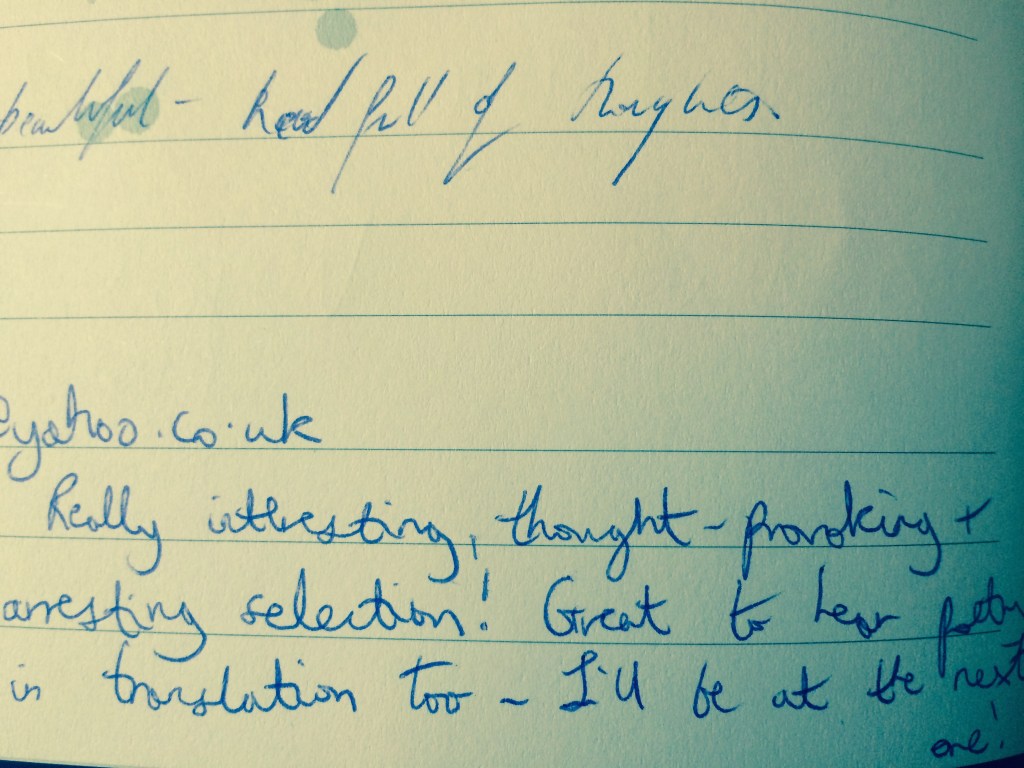 beautiful - head full of thoughts
@yahoo.co.uk
Really interesting, thought-provoking +
arresting selection! Great to hear poetry
in translation too - I'll be at the next
one!